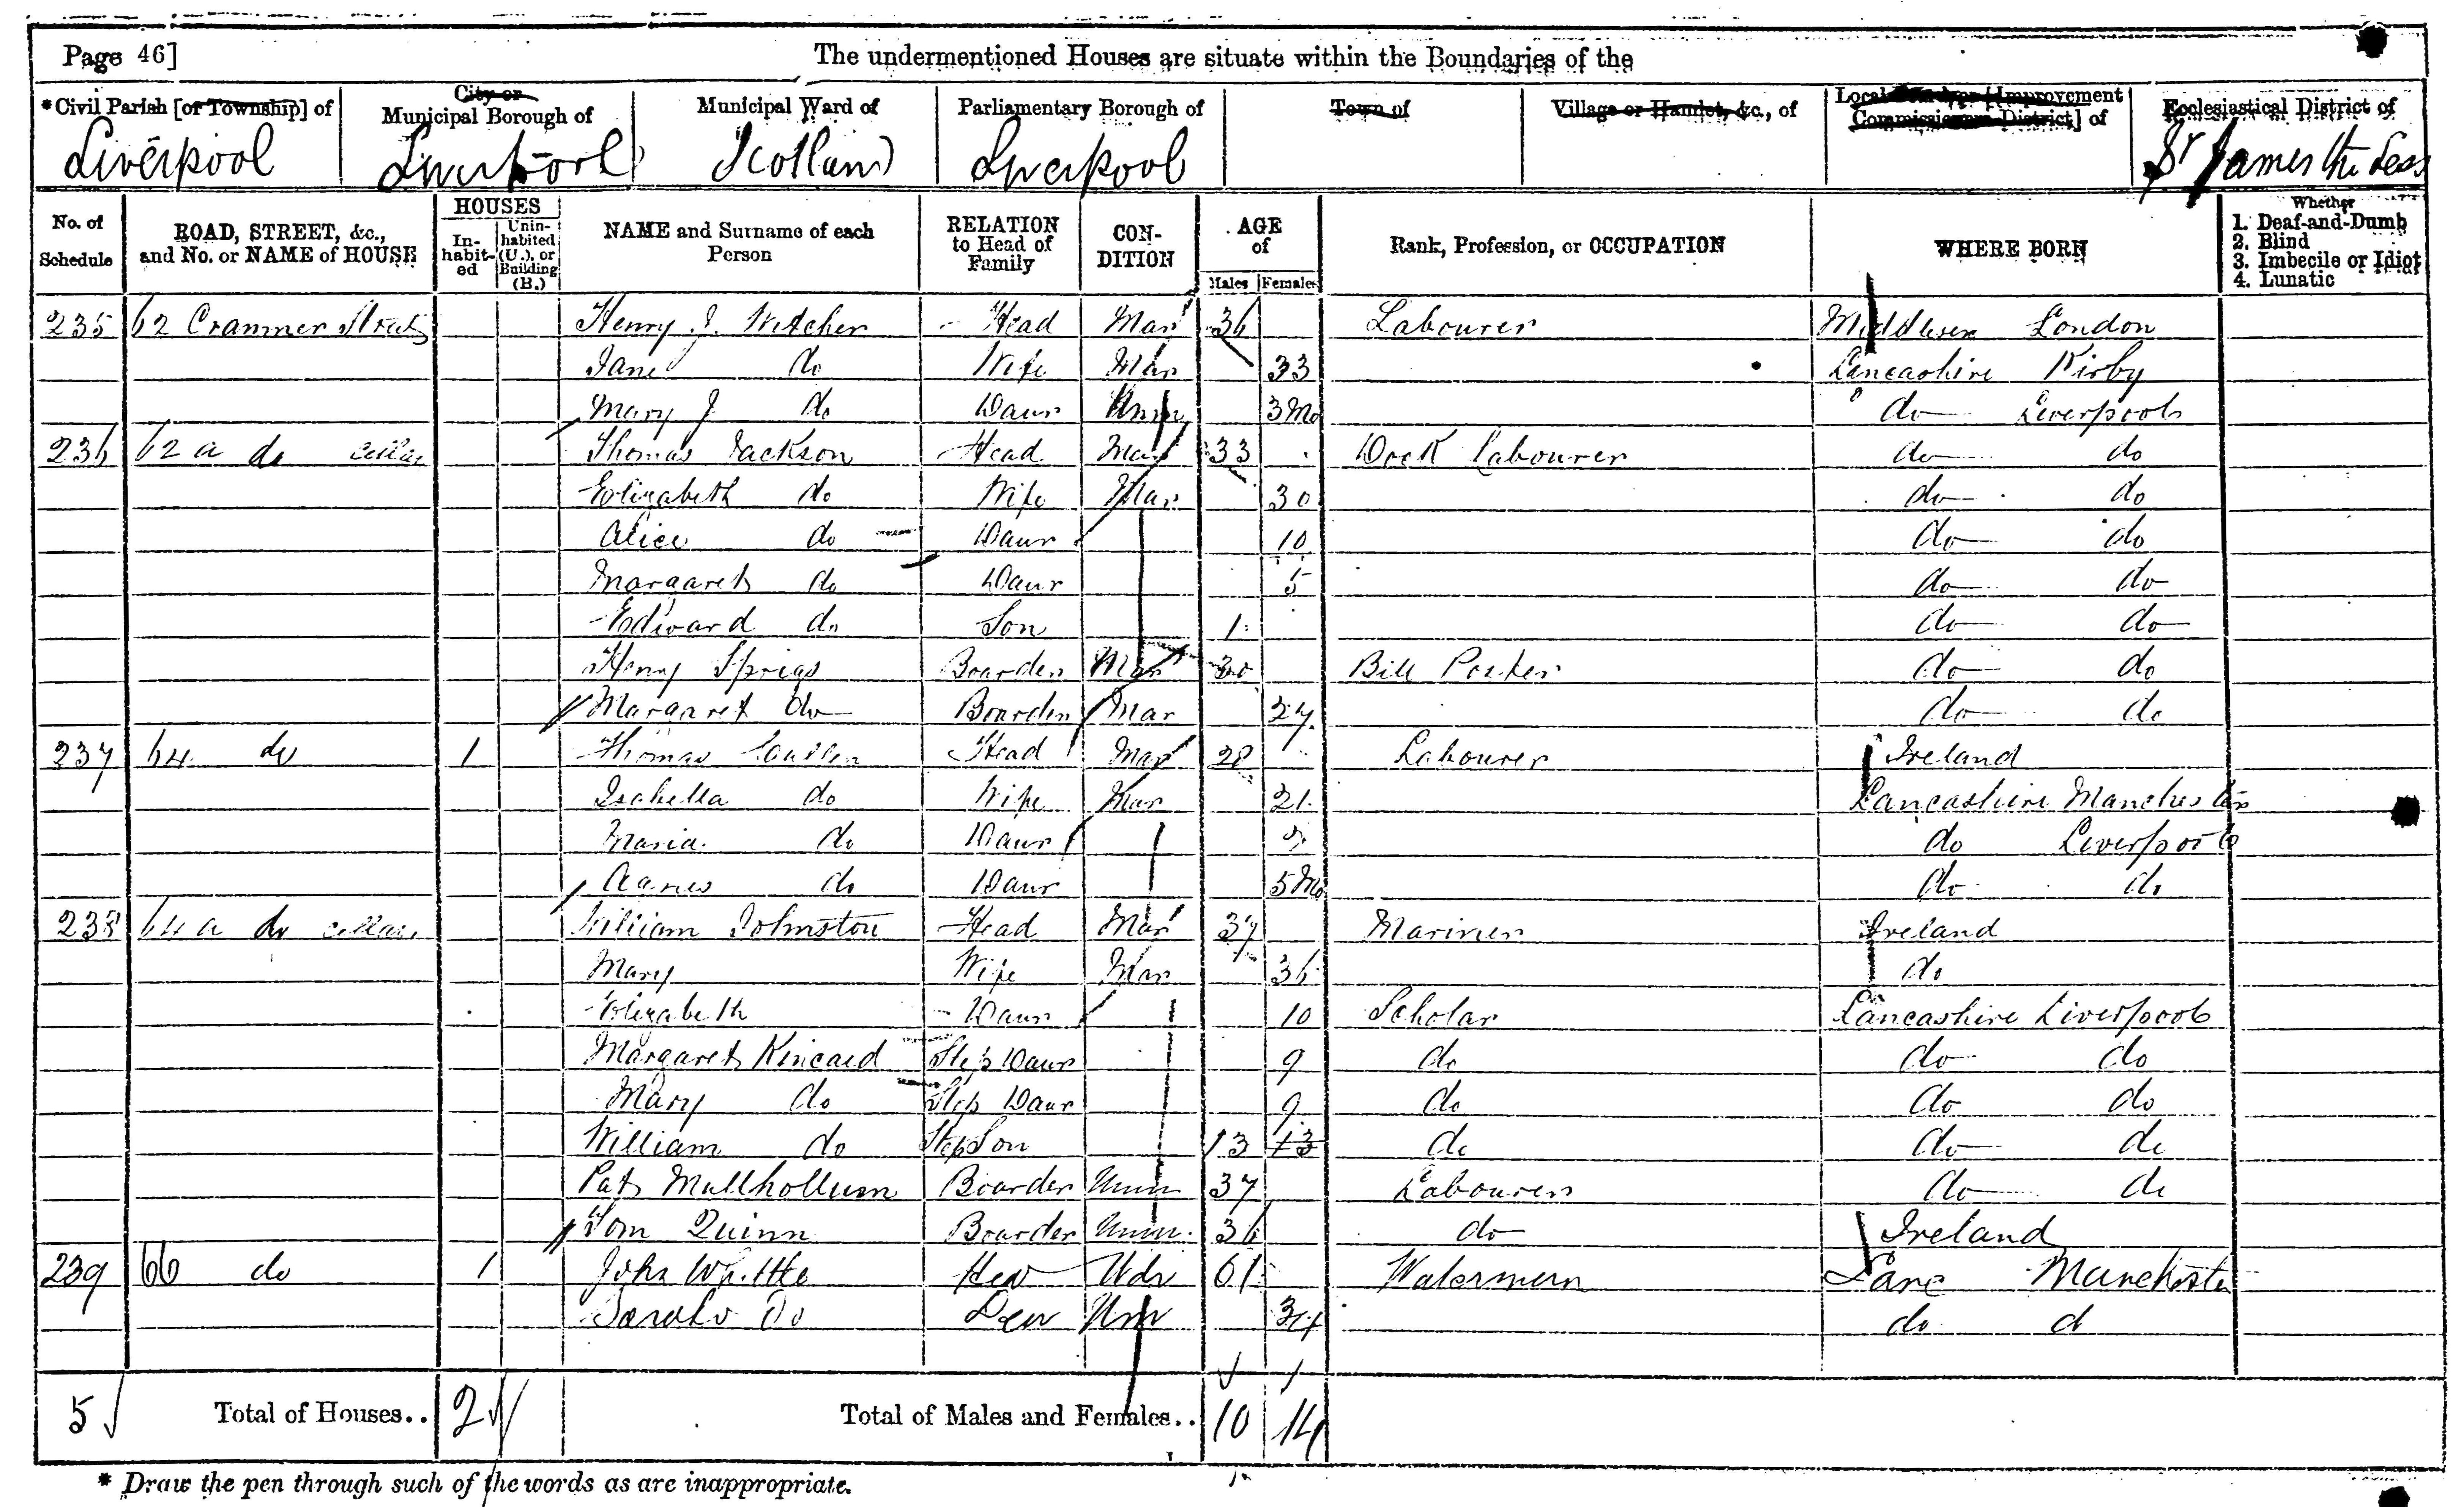 Page 46]
The undermentioned Houses are situate within the Boundaries of the
*Civil Parish [or Township] of
City or Municipal Borough of
Municipal Ward of
Parliamentary Borough of
Town of
Village or Hamlet, &c., of
Local Board, or [Improvement Commissioners District] of
Ecclesiastical District of
Liverpool Liverpool Scotland Liverpool St James the Less
No. of Schedule
ROAD, STREET, &c., and No. or NAME of HOUSE
HOUSES
In-habit-ed
Unin-habited (U.), or Building (B.)
NAME and Surname of each Person
RELATION to Head of Family
CON-DITION
AGE of
Males Females
Rank, Profession, or OCCUPATION
WHERE BORN
Whether
1. Deaf-and-Dumb
2. Blind
3. Imbecile or Idiot
4. Lunatic
235 62 Cranmer Street Henry J. Witcher Head Mar 36 Labourer Middlesex London
Jane do Wife Mar 33 Lancashire Kirby
Mary J do Daur Unm 3 Mo do Liverpool
236 62 a do cellar Thomas Jackson Head Mar 33 Dock Labourer do do
Elizabeth do Wife Mar 30 do do
Alice do Daur 10 do do
Margaret do Daur 5 do do
Edward do Son 1 do do
Henry Sprigs Boarder Mar 30 Bill Poster do do
Margaret do Boarder Mar 27 do do
237 64 do 1 Thomas Head Mar 28 Labourer Ireland
Isabella do Wife Mar 21 Lancashire Manchester
Maria do Daur do Liverpool
Agnes do Daur 5 Mo do do
238 64 a do cellar William Johnston Head Mar 37 Mariner Ireland
Mary Wife Mar 36 do
Elizabeth Daur 10 Scholar Lancashire Liverpool
Margaret Kincaid Step Daur 9 do do do
Mary do Step Daur 9 do do do
William do Step Son 13 13 do do do
Pat Mullhollum Boarder Unm 37 Labourer do do
Tom Quinn Boarder Unm 36 do Ireland
239 66 do 1 John Whittle Head Wdr 61 Waterman Lanc Manchester
Sarah Do Unm 34 do d
5 Total of Houses.. 2 Total of Males and Females.. 10 14
* Draw the pen through such of the words as are inappropriate.